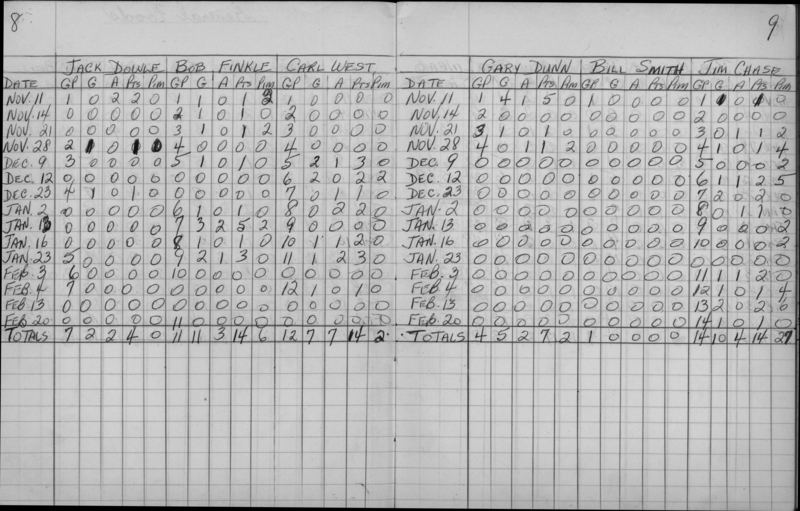 8
9
JACK DOWLE BOB FINKLE CARL WEST GARY DUNN BILL SMITH JIM CHASE
DATE GP G A Pts Pim GP G A Pts Pim GP G A Pts Pim DATE GP G A Pts Pim GP G A Pts Pim GP G A Pts Pim
NOV. 11 1 0 2 2 0 1 1 0 1 2 1 0 0 0 0 NOV. 11 1 4 1 5 0 1 0 0 0 0 1 1 0 1 0
NOV. 14 0 0 0 0 0 2 1 0 1 0 2 0 0 0 0 NOV. 14 2 0 0 0 0 0 0 0 0 0 2 0 0 0 0
NOV. 21 0 0 0 0 0 3 1 0 1 2 3 0 0 0 0 NOV. 21 3 1 0 1 0 0 0 0 0 0 3 0 1 1 2
NOV. 28 2 1 0 1 0 4 0 0 0 0 4 0 0 0 0 NOV. 28 4 0 1 1 2 0 0 0 0 0 4 1 0 1 4
DEC. 9 3 0 0 0 0 5 1 0 1 0 5 2 1 3 0 DEC. 9 0 0 0 0 0 0 0 0 0 0 5 0 0 0 2
DEC. 12 0 0 0 0 0 0 0 0 0 0 6 2 0 2 2 DEC. 12 0 0 0 0 0 0 0 0 0 0 6 1 1 2 5
DEC. 23 4 1 0 1 0 0 0 0 0 0 7 0 1 1 0 DEC. 23 0 0 0 0 0 0 0 0 0 0 7 2 0 2 0
JAN. 2 0 0 0 0 0 6 1 0 1 0 8 0 2 2 0 JAN. 2 0 0 0 0 0 0 0 0 0 0 8 0 1 1 0
JAN. 13 0 0 0 0 0 7 3 2 5 2 9 0 0 0 0 JAN. 13 0 0 0 0 0 0 0 0 0 0 9 0 0 0 2
JAN. 16 0 0 0 0 0 8 1 0 1 0 10 1 1 2 0 JAN. 16 0 0 0 0 0 0 0 0 0 0 10 0 0 0 2
JAN. 23 5 0 0 0 0 9 2 1 3 0 11 1 2 3 0 JAN. 23 0 0 0 0 0 0 0 0 0 0 0 0 0 0 0
FEB. 3 6 0 0 0 0 10 0 0 0 0 0 0 0 0 0 FEB. 3 0 0 0 0 0 0 0 0 0 0 11 1 1 2 0
FEB. 4 7 0 0 0 0 0 0 0 0 0 12 1 0 1 0 FEB. 4 0 0 0 0 0 0 0 0 0 0 12 1 0 1 4
FEB 13 0 0 0 0 0 0 0 0 0 0 0 0 0 0 0 FEB. 13 0 0 0 0 0 0 0 0 0 0 13 2 0 2 6
FEB 20 0 0 0 0 0 11 0 0 0 0 0 0 0 0 0 FEB. 20 0 0 0 0 0 0 0 0 0 0 14 1 0 1 0
TOTALS 7 2 2 4 0 11 11 3 14 6 12 7 7 14 2 TOTALS 4 5 2 7 2 1 0 0 0 0 14 10 4 14 27